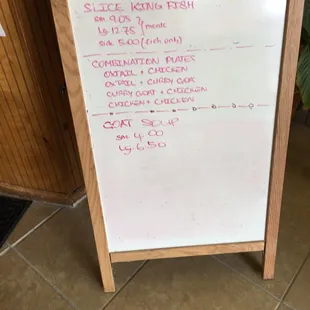 SLICE KING FISH
SM. 9.05 ? } meals
Lg. 12.75
Side 5.00 (fish only)
COMBINATION PLATES
OXTAIL + CHICKEN
OXTAIL + CURRY GOAT
CURRY GOAT + CHICKEN
CHICKEN + CHICKEN
GOAT SOUP
SM. 4.00
Lg 6.50